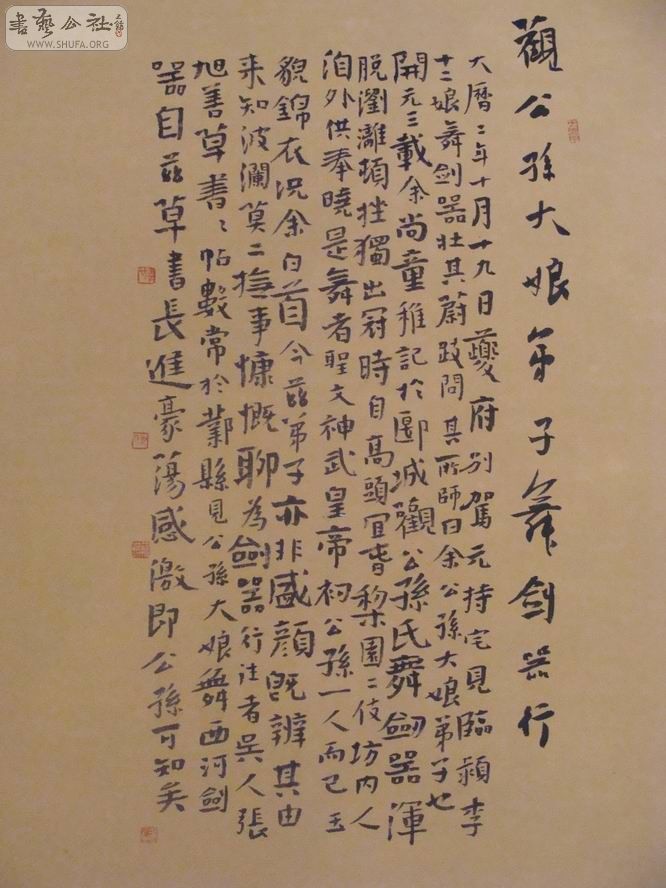 書藝公社
WWW.SHUFA.ORG
觀公孫大娘弟子舞劍器行
大曆二年十月十九日夔府別駕元持宅見臨潁李
十二娘舞劍器壯其蔚跂問其所師曰余公孫大娘弟子也
開元三載余尚童稚記於郾城觀公孫氏舞劍器渾
脫瀏灕頓挫獨出冠時自高頭宜春梨園二伎坊內人
洎外供奉曉是舞者聖文神武皇帝初公孫一人而已玉
貌錦衣況余白首今茲弟子亦非盛顏既辨其由
來知波瀾莫二撫事慷慨聊為劍器行往者吳人張
旭善草書〻帖數常於鄴縣見公孫大娘舞西河劍
器自茲草書長進豪蕩感激即公孫可知矣